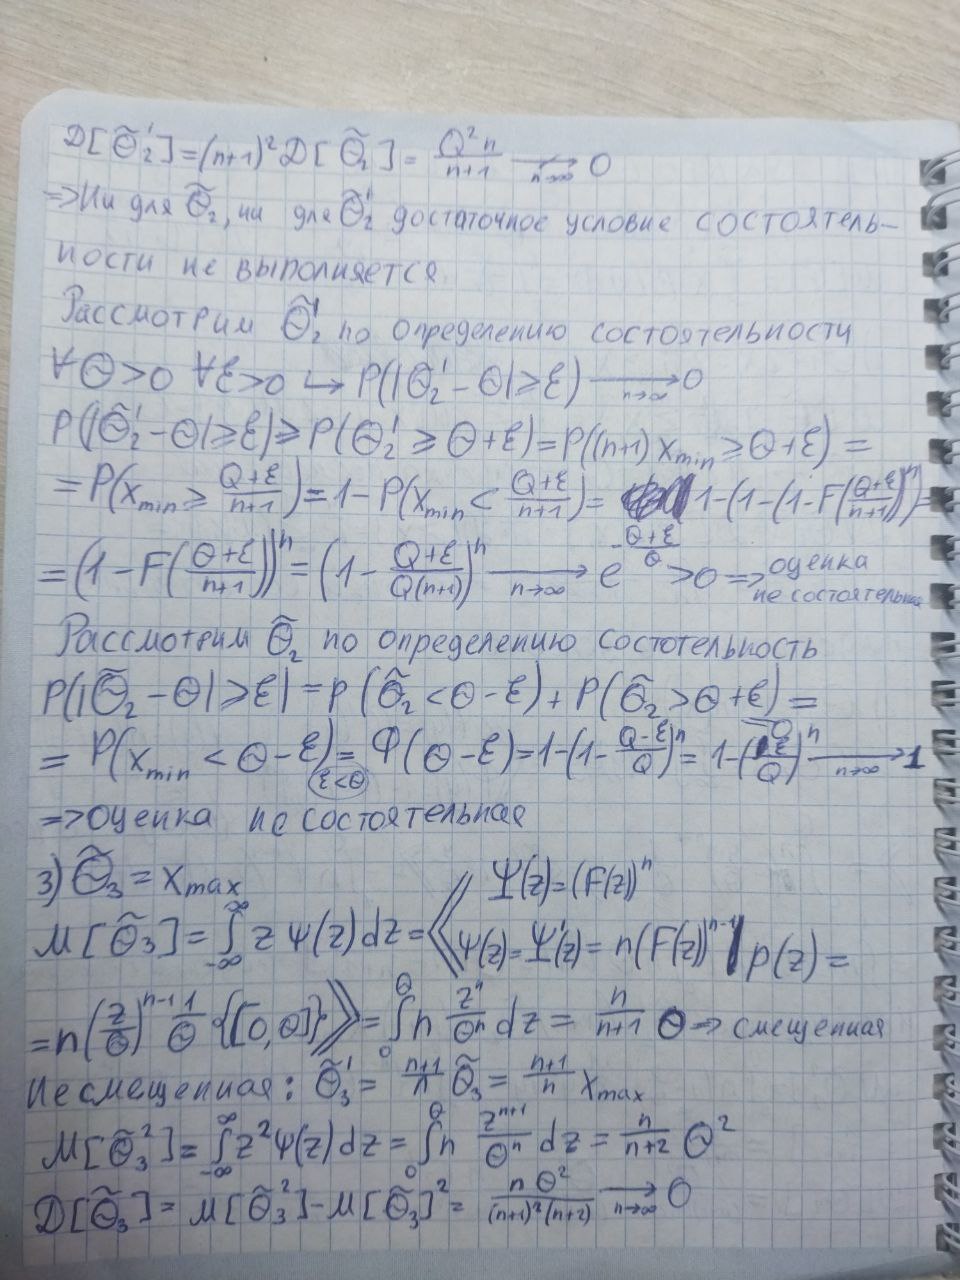 D[Θ̃₂']=(n+1)²D[Θ̃₂]= Q²n/(n+1) →(n→∞) 0
=>Ни для Θ̃₂, ни для Θ̃₂' достаточное условие состоятель-
ности не выполняется
Рассмотрим Θ̃₂' по определению состоятельности
∀Θ>0 ∀ε>0 ↪ P(|Θ̃₂'-Θ|≥ε) →(n→∞) 0
P(|Θ̃₂'-Θ|≥ε)≥P(Θ̃₂'≥Θ+ε)=P((n+1)x_min≥Θ+ε)=
=P(x_min≥(Q+ε)/(n+1))=1-P(x_min<(Q+ε)/(n+1))= 1-(1-(1-F((Q+ε)/(n+1)))ⁿ)=
=(1-F((Θ+ε)/(n+1)))ⁿ=(1-(Q+ε)/(Q(n+1)))ⁿ →(n→∞) e^(-(Θ+ε)/Θ)>0=>оценка не состоятельна
Рассмотрим Θ̃₂ по определению состотельность
P(|Θ̃₂-Θ|≥ε|=P(Θ̃₂<Θ-ε)+P(Θ̃₂>Θ+ε)= =0
=P(x_min<Θ-ε)=Φ(Θ-ε)=1-(1-(Q-ε)/Q)ⁿ=1-(ε/Q)ⁿ →(n→∞) 1
ε<Θ
=>оценка не состоятельная
3) Θ̃₃=x_max Ψ(z)=(F(z))ⁿ
M[Θ̃₃]=∫_{-∞}^{∞} z ψ(z)dz=⟨⟨ψ(z)=Ψ'(z)=n(F(z))ⁿ⁻¹ p(z)=
=n(z/Θ)ⁿ⁻¹ 1/Θ {[0,Θ]}⟩⟩=∫₀^Θ n zⁿ/Θⁿ dz= n/(n+1) Θ => смещенная
Несмещенная: Θ̃₃'= (n+1)/n Θ̃₃= (n+1)/n x_max
M[Θ̃₃²]=∫_{-∞}^{∞} z²ψ(z)dz=∫₀^Θ n zⁿ⁺¹/Θⁿ dz= n/(n+2) Θ²
D[Θ̃₃]= M[Θ̃₃²]-M[Θ̃₃]²= nΘ²/((n+1)²(n+2)) →(n→∞) 0